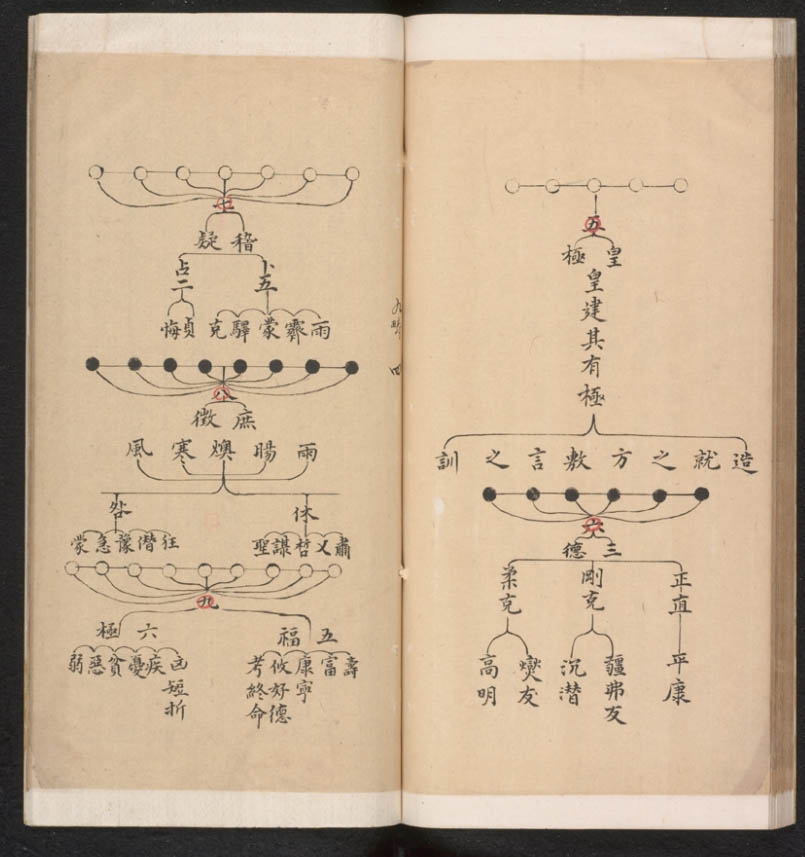 五
皇極
皇建其有極
造就之方敷言之訓
六
三德
正直
平康
剛克
彊弗友
沉潛
柔克
爕友
高明
九疇 四
七
稽疑
卜五
雨霽蒙驛克
占二
貞悔
八
庶徵
雨暘燠寒風
休
肅乂哲謀聖
咎
狂僭豫急蒙
九
五福
壽
富
康寧
攸好德
考終命
六極
凶短折
疾
憂
貧
惡
弱